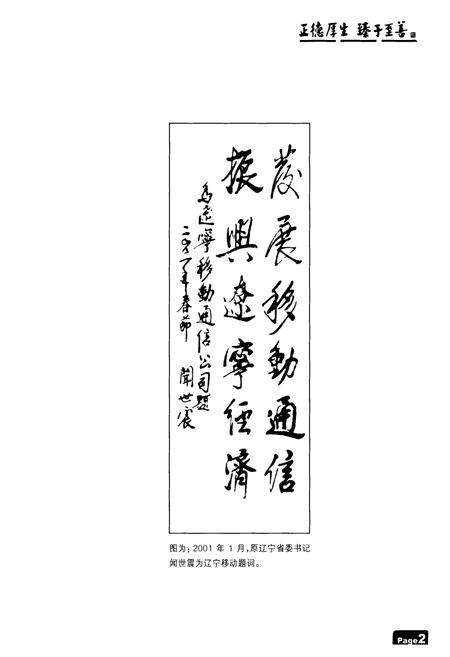 正德厚生 臻于至善
發展移動通信
振興遼寧經濟
為遼寧移動通信公司題
二〇〇一年春節 聞世震
图为：2001 年 1 月，原辽宁省委书记
闻世震为辽宁移动题词。
Page2